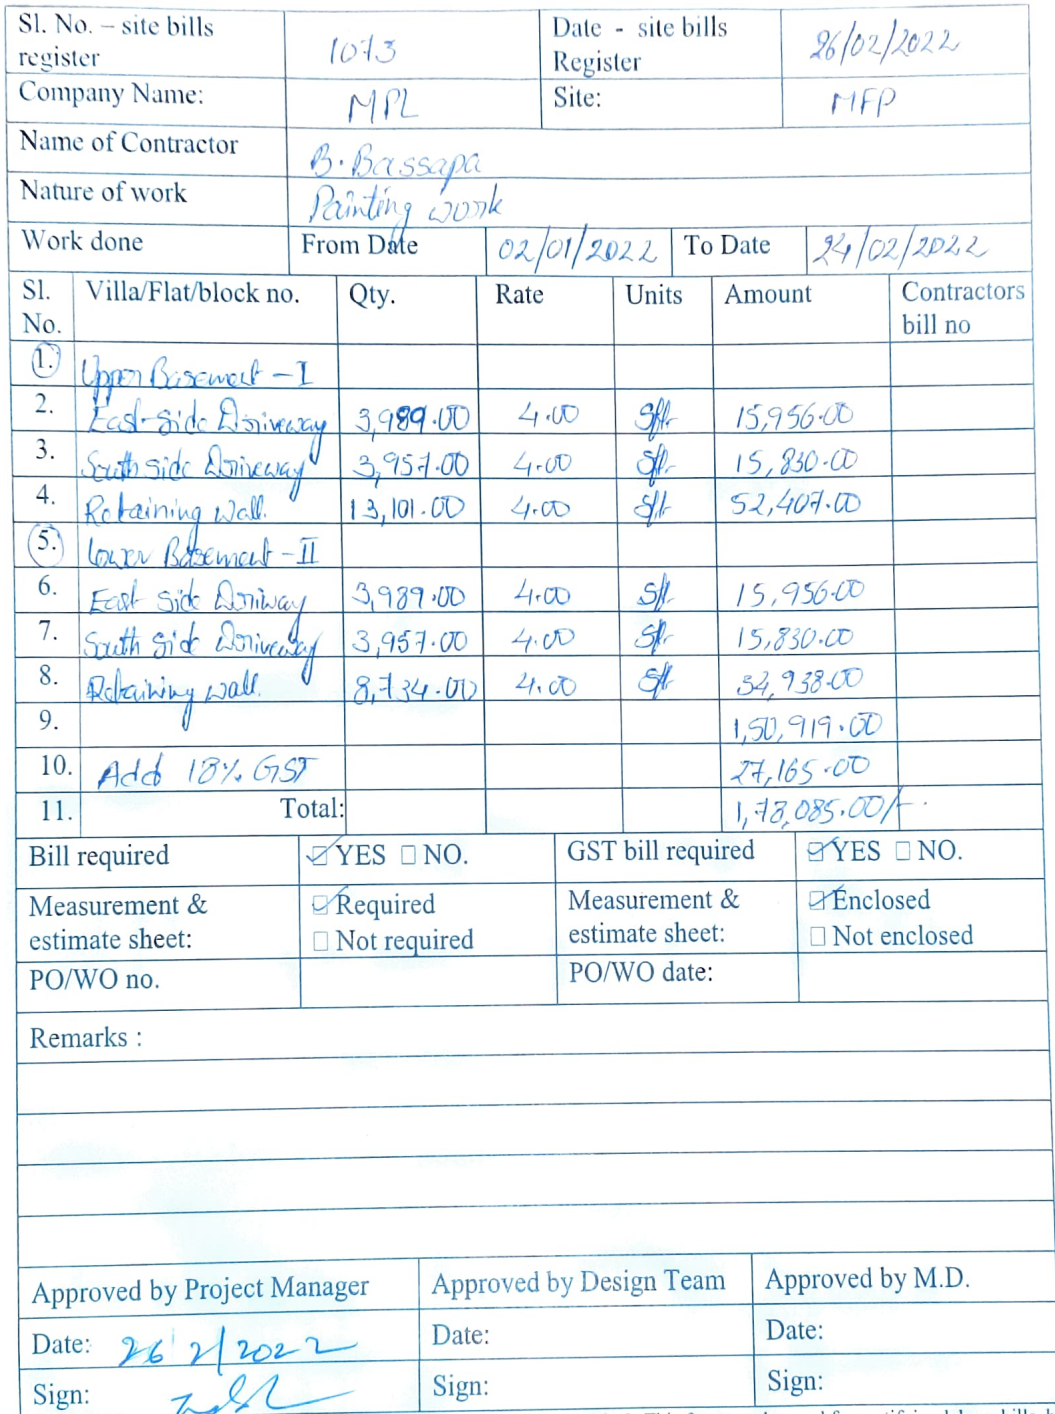 Sl. No. – site bills register 1073 Date - site bills Register 26/02/2022
Company Name: MPL Site: MFP
Name of Contractor B. Bassapa
Nature of work Painting work
Work done From Date 02/01/2022 To Date 24/02/2022
Sl. No. Villa/Flat/block no. Qty. Rate Units Amount Contractors bill no
1. Upper Basement - I
2. East-side Driveway 3,989.00 4.00 Sft. 15,956.00
3. South side Driveway 3,957.00 4.00 Sft. 15,830.00
4. Retaining Wall. 13,101.00 4.00 Sft 52,407.00
5. Lower Basement - II
6. East side Driway 3,989.00 4.00 Sft. 15,956.00
7. South side Driveway 3,957.00 4.00 Sft. 15,830.00
8. Retaining wall. 8,734.00 4.00 Sft 34,938.00
9. 1,50,919.00
10. Add 18% GST 27,165.00
11. Total: 1,78,085.00/-
Bill required ☑ YES ☐ NO. GST bill required ☑ YES ☐ NO.
Measurement & estimate sheet: ☑ Required ☐ Not required Measurement & estimate sheet: ☑ Enclosed ☐ Not enclosed
PO/WO no. PO/WO date:
Remarks :
Approved by Project Manager Approved by Design Team Approved by M.D.
Date: 26/2/2022 Date: Date:
Sign: Sign: Sign: